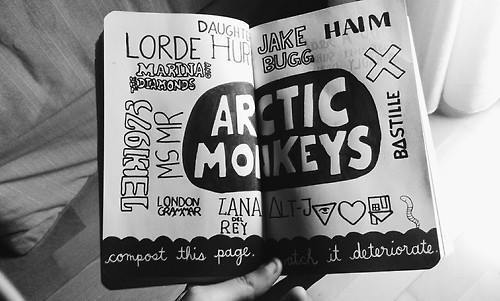 DAUGHTER
LORDE HUR
MARINA AND
THE DIAMONDS
JAKE
BUGG
HAIM
ARCTIC
MONKEYS
1975
MS MR
BASTILLE
LONDON
GRAMMAR
LANA
DEL
REY
ALT-J
compost this page. watch it deteriorate.